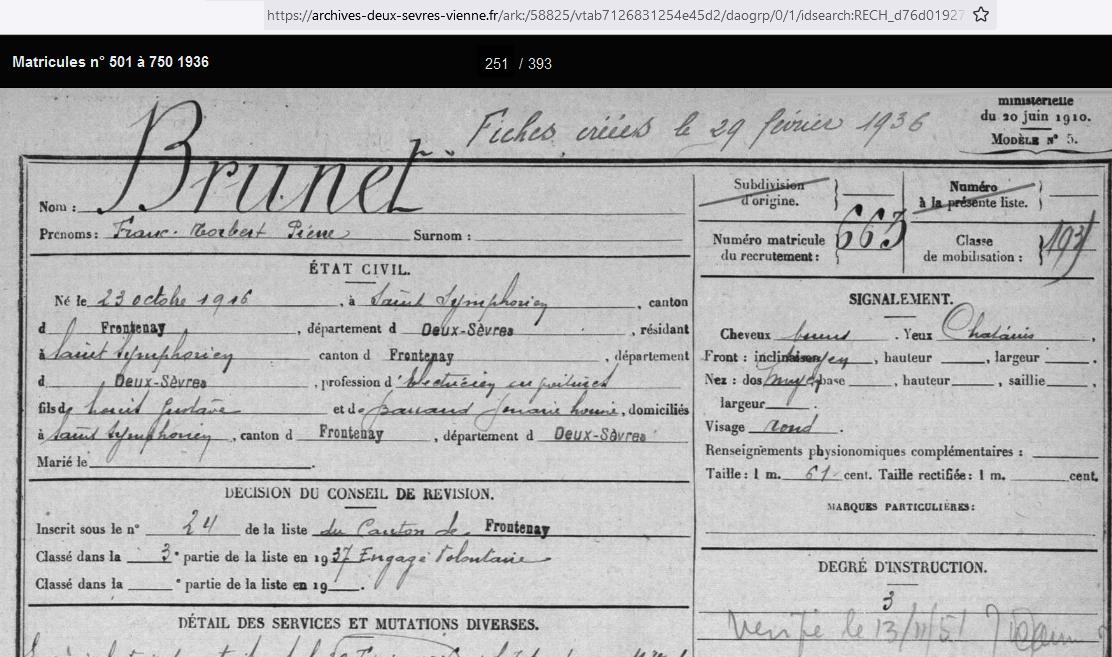 https://archives-deux-sevres-vienne.fr/ark:/58825/vtab7126831254e45d2/daogrp/0/1/idsearch:RECH_d76d01927
Matricules n° 501 à 750 1936
251 / 393
ministérielle
du 20 juin 1910.
MODÈLE N° 5.
Fiches créées le 29 février 1936
Nom : Brunet
Prénoms : Franc. Norbert Pierre Surnom :
Subdivision d'origine.
Numéro à la présente liste.
Numéro matricule du recrutement : 663
Classe de mobilisation : 193
ÉTAT CIVIL.
Né le 23 octobre 1916, à Saint Symphorien, canton
d Frontenay, département d Deux-Sèvres, résidant
à Saint Symphorien canton d Frontenay, département
d Deux-Sèvres, profession d'électricien
fils d Gustave et de, domiciliés
à Saint Symphorien, canton d Frontenay, département d Deux-Sèvres
Marié le .
SIGNALEMENT.
Cheveux bruns. Yeux Chatains,
Front : inclinaison moyen, hauteur , largeur .
Nez : dos base , hauteur , saillie ,
largeur .
Visage rond.
Renseignements physionomiques complémentaires :
Taille : 1 m. 61 cent. Taille rectifiée : 1 m. cent.
MARQUES PARTICULIÈRES :
DÉCISION DU CONSEIL DE REVISION.
Inscrit sous le n° 24 de la liste du Canton de Frontenay
Classé dans la 3e partie de la liste en 1937 Engagé Volontaire
Classé dans la e partie de la liste en 19 .
DEGRÉ D'INSTRUCTION.
3
Vérifié le 13/11/51
DÉTAIL DES SERVICES ET MUTATIONS DIVERSES.